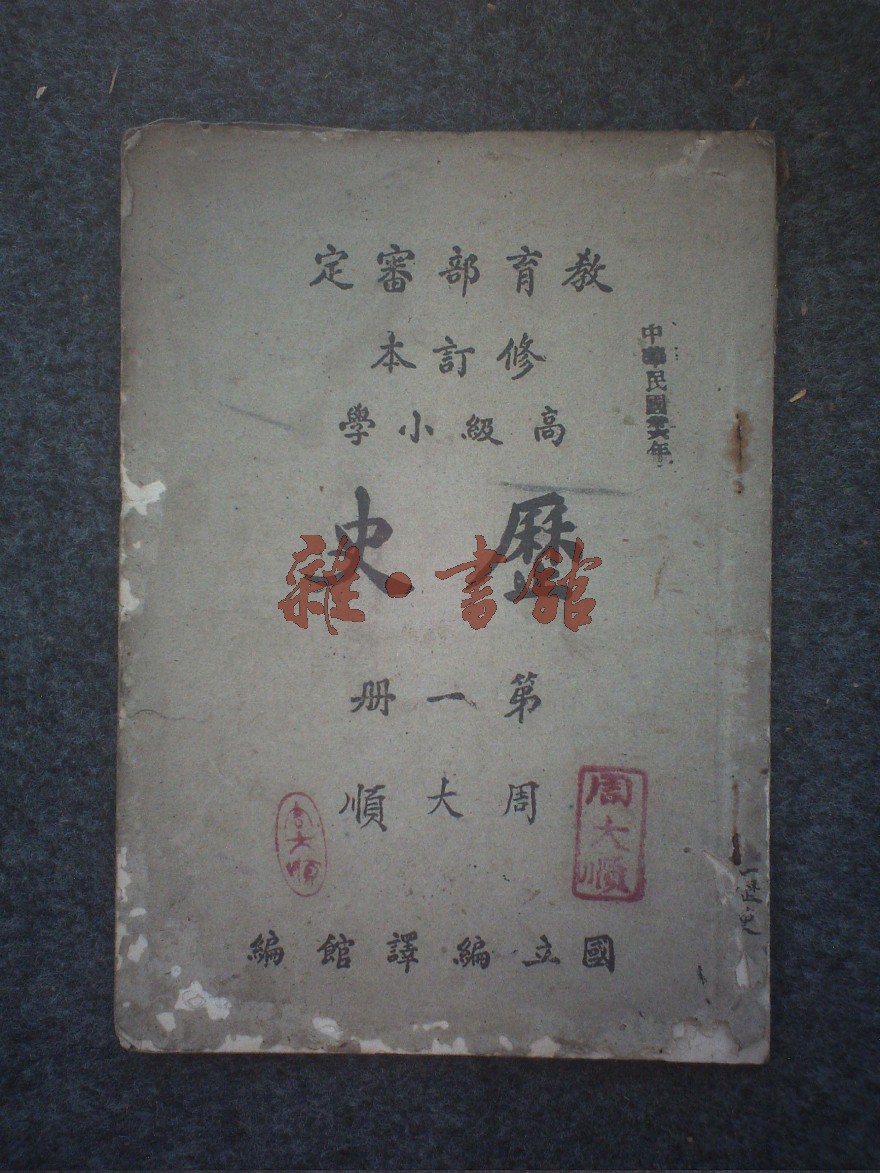 教育部審定
修訂本
高級小學
歷史
第一册
周大順
國立編譯館編
中華民國卅六年
雜·書館
周大順
周大順